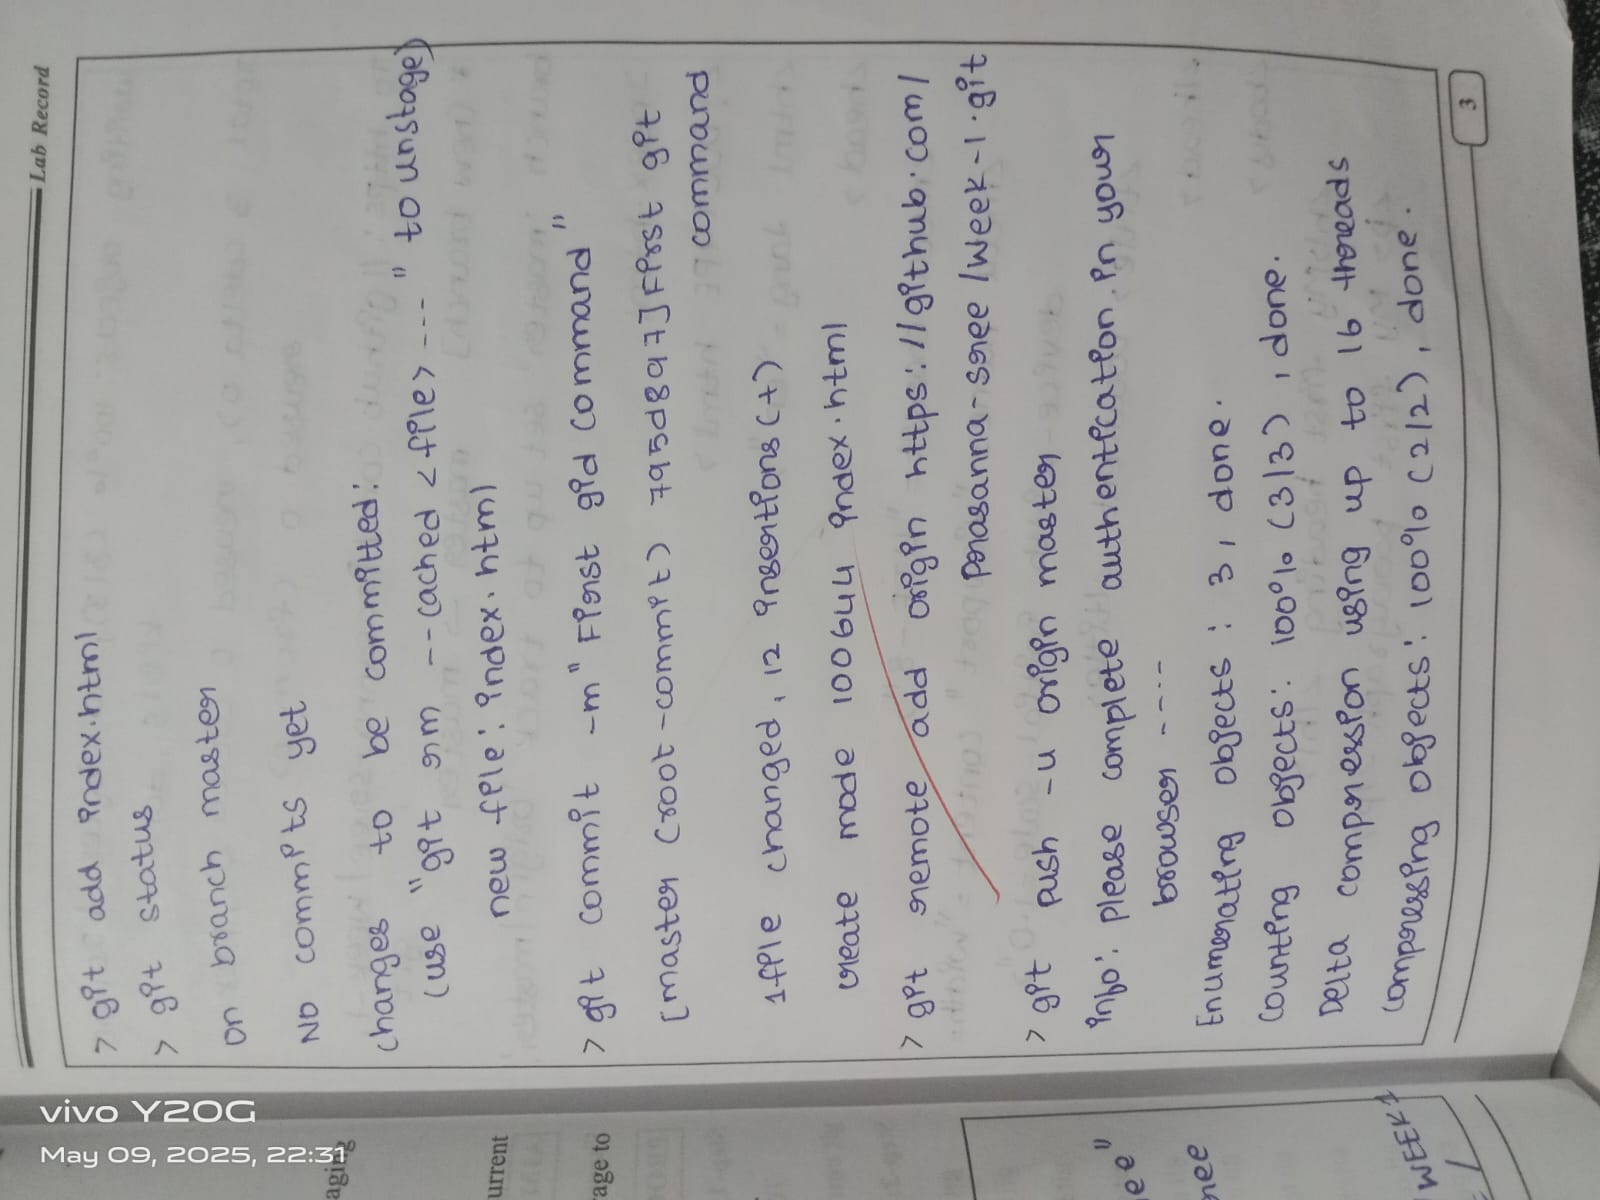 Lab Record
> git add index.html
> git status
on branch master
No commits yet
changes to be committed:
(use "git rm --cached <file> ---- " to unstage)
new file: index.html
> git commit -m "First gid command"
[master (root-commit) 795d897] First git
command
1 file changed, 12 insertions(+)
create mode 100644 index.html
> git remote add origin https://github.com/
prasanna-sree/week-1.git
> git push -u origin master
info: please complete authentication in your
browser ----
Enumerating objects: 3, done.
Counting objects: 100% (3/3), done.
Delta compression using up to 16 threads
Compressing objects: 100% (2/2), done.
3
vivo Y20G
May 09, 2025, 22:31
aging
urrent
rage to
ee"
WEEK1